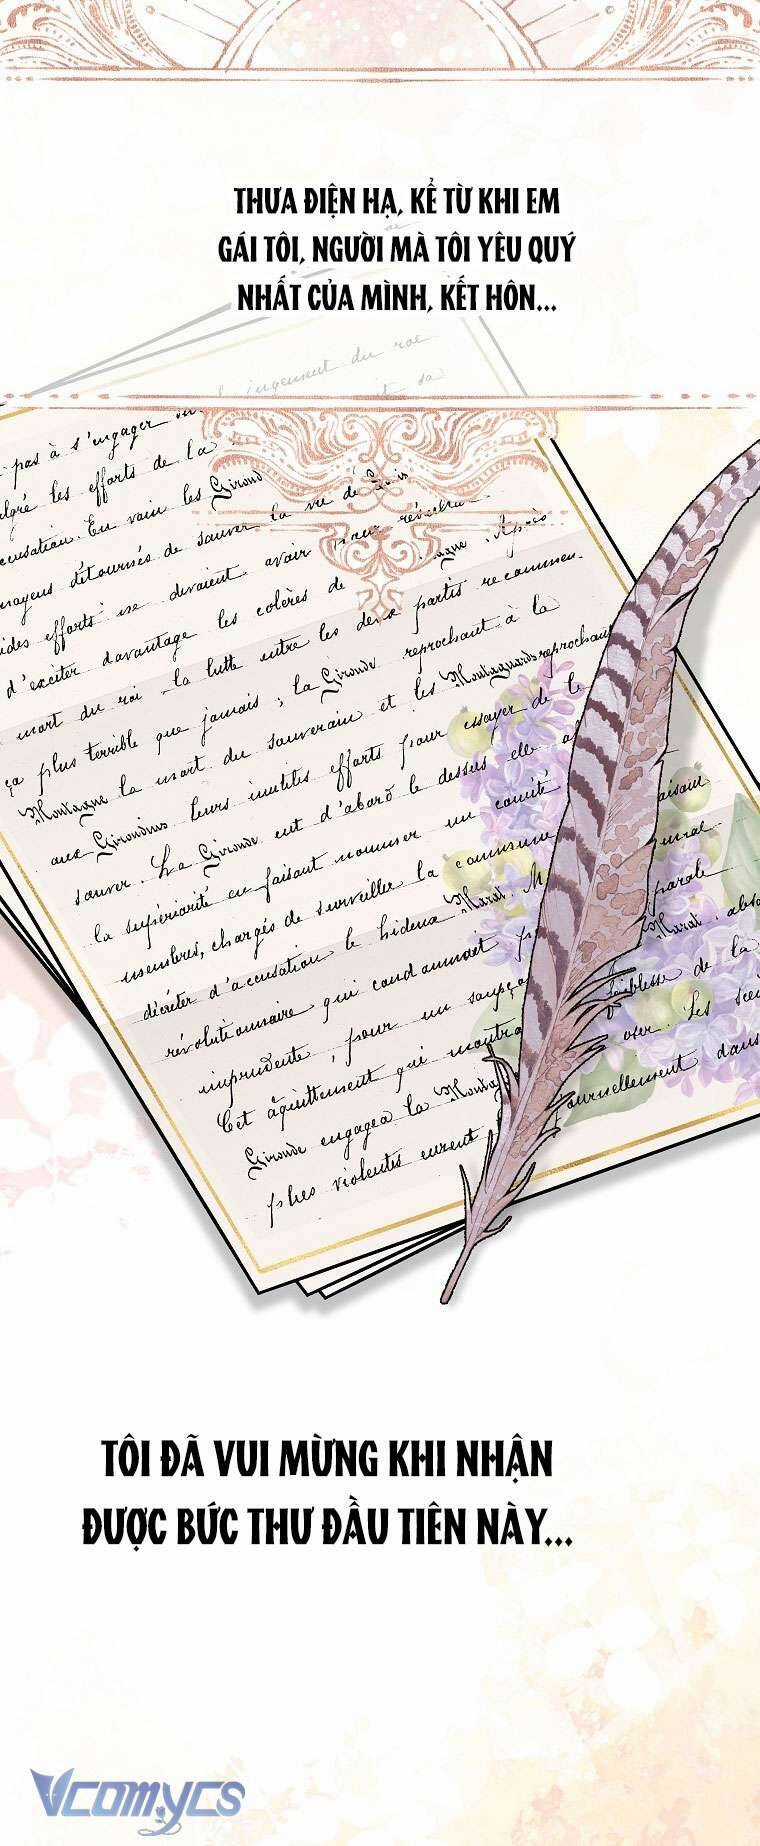 THƯA ĐIỆN HẠ, KỂ TỪ KHI EM
GÁI TÔI, NGƯỜI MÀ TÔI YÊU QUÝ
NHẤT CỦA MÌNH, KẾT HÔN...
jugement du roi
pas à s'engager
malgré les efforts de la
accusation. En vain les Girond
moyens détournés de sauver la vie de Louis
efforts ne devaient avoir pour résultat
d'exciter davantage les colères de Après
mort du roi la lutte entre les deux partis recommen-
ça plus terrible que jamais; la Gironde reprochant à la
Montagne la mort du souverain et les Montagnards reprochant
aux Girondins leurs inutiles efforts pour essayer de le
sauver. La Gironde eut d'abord le dessus elle
la supériorité en faisant nommer un comité
membres, chargés de surveiller la commune
décréter d'accusation le hideux Marat. parole
révolutionnaire qui condamnait Marat. abso
imprudente, pour un soupço faiblesse de la
Cet acquittement qui montra oser. Les
Gironde engagea la Montag journellement dans
plus violentes eurent
TÔI ĐÃ VUI MỪNG KHI NHẬN
ĐƯỢC BỨC THƯ ĐẦU TIÊN NÀY...
Vcomycs